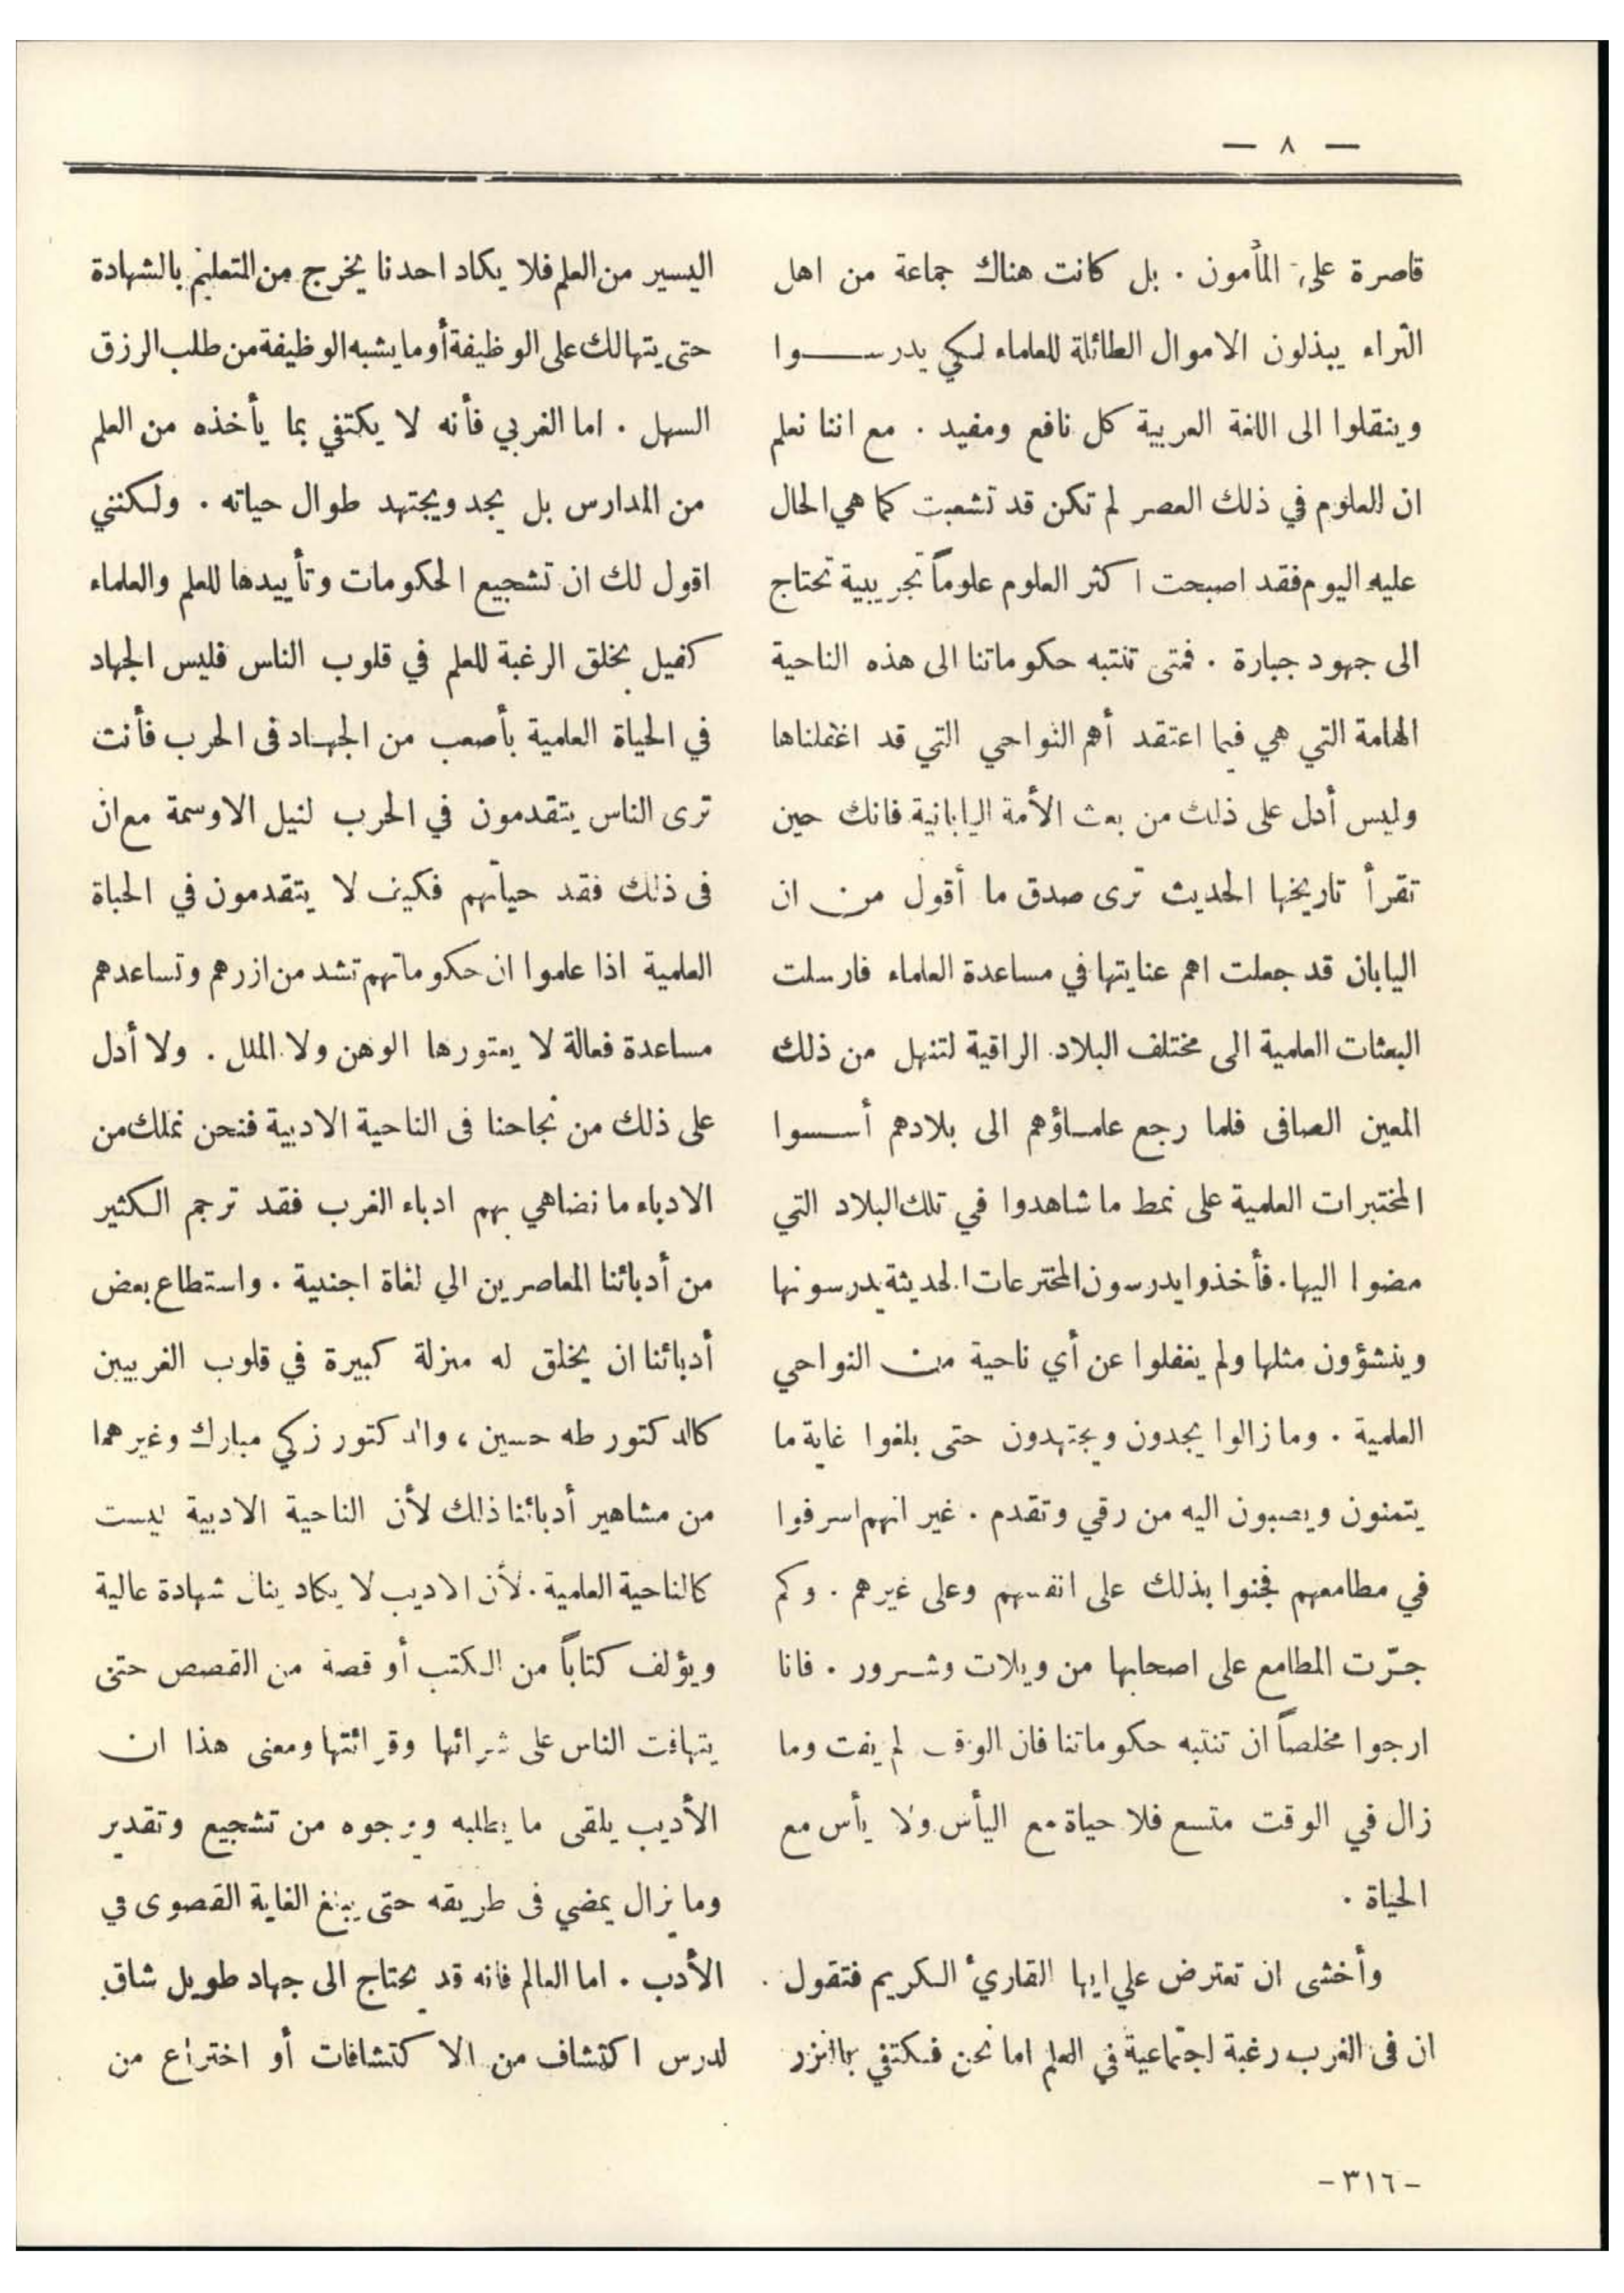 — ٨ —
قاصرة على المأمون . بل كانت هناك جماعة من اهل
الثراء يبذلون الاموال الطائلة للعلماء لكي يدرســـوا
وينقلوا الى اللغة العربية كل نافع ومفيد . مع اننا نعلم
ان العلوم في ذلك العصر لم تكن قد تشعبت كما هي الحال
عليه اليوم فقد اصبحت اكثر العلوم علوماً تجريبية تحتاج
الى جهود جبارة . فمتى تنتبه حكوماتنا الى هذه الناحية
الهامة التي هي فيما اعتقد أهم النواحي التي قد اغفلناها
وليس أدل على ذلك من بعث الأمة اليابانية فانك حين
تقرأ تاريخها الحديث ترى صدق ما أقول من ان
اليابان قد جعلت اهم عنايتها في مساعدة العلماء فارسلت
البعثات العلمية الى مختلف البلاد الراقية لتنهل من ذلك
المعين الصافى فلما رجع علماؤهم الى بلادهم أسسوا
المختبرات العلمية على نمط ما شاهدوا في تلك البلاد التي
مضوا اليها . فأخذوا يدرسون المخترعات الحديثة يدرسونها
وينشؤون مثلها ولم يغفلوا عن أي ناحية من النواحي
العلمية . وما زالوا يجدون ويجتهدون حتى بلغوا غاية ما
يتمنون ويصبون اليه من رقي وتقدم . غير انهم اسرفوا
في مطامعهم فجنوا بذلك على انفسهم وعلى غيرهم . وكم
جرّت المطامع على اصحابها من ويلات وشرور . فانا
ارجوا مخلصاً ان تنتبه حكوماتنا فان الوقت لم يفت وما
زال في الوقت متسع فلا حياة مع اليأس ولا يأس مع
الحياة .
وأخشى ان تعترض علي ايها القاريء الكريم فتقول .
ان فى الغرب رغبة اجتماعية في العلم اما نحن فنكتفي بالنزر
اليسير من العلم فلا يكاد احدنا يخرج من التعليم بالشهادة
حتى يتهالك على الوظيفة أو ما يشبه الوظيفة من طلب الرزق
السهل . اما الغربي فأنه لا يكتفي بما يأخذه من العلم
من المدارس بل يجد ويجتهد طوال حياته . ولكنني
اقول لك ان تشجيع الحكومات وتأييدها للعلم والعلماء
كفيل بخلق الرغبة للعلم في قلوب الناس فليس الجهاد
في الحياة العلمية بأصعب من الجهاد فى الحرب فأنت
ترى الناس يتقدمون في الحرب لنيل الاوسمة مع ان
فى ذلك فقد حياتهم فكيف لا يتقدمون في الحياة
العلمية اذا علموا ان حكوماتهم تشد من ازرهم وتساعدهم
مساعدة فعالة لا يعتورها الوهن ولا الملل . ولا أدل
على ذلك من نجاحنا فى الناحية الادبية فنحن نملك من
الادباء ما نضاهي بهم ادباء الغرب فقد ترجم الكثير
من أدبائنا المعاصرين الي لغاة اجنبية . واستطاع بعض
أدبائنا ان يخلق له منزلة كبيرة في قلوب الغربيين
كالدكتور طه حسين ، والدكتور زكي مبارك وغيرهما
من مشاهير أدبائنا ذلك لأن الناحية الادبية ليست
كالناحية العلمية . لأن الاديب لا يكاد ينال شهادة عالية
ويؤلف كتاباً من الكتب أو قصة من القصص حتى
يتهافت الناس على شرائها وقرائتها ومعنى هذا ان
الأديب يلقى ما يطلبه ويرجوه من تشجيع وتقدير
وما يزال يمضي فى طريقه حتى يبلغ الغاية القصوى في
الأدب . اما العالم فانه قد يحتاج الى جهاد طويل شاق
لدرس اكتشاف من الاكتشافات أو اختراع من
-٣١٦-